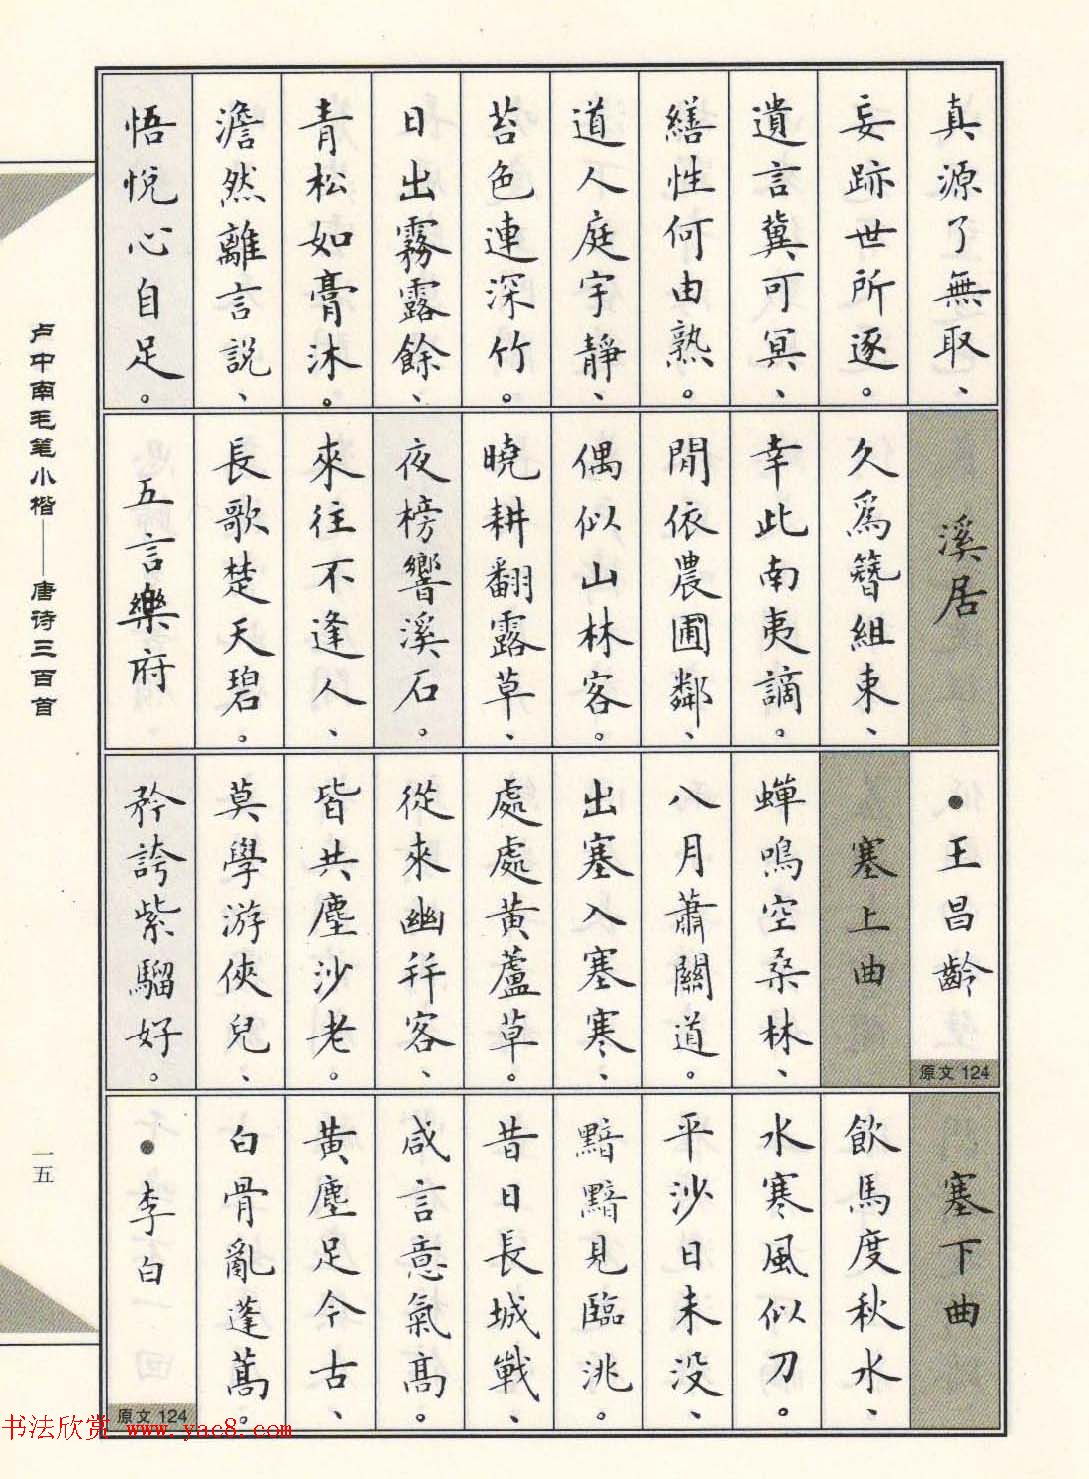 真源了無取、
妄跡世所逐。
遺言冀可冥、
繕性何由熟。
道人庭宇靜、
苔色連深竹。
日出霧露餘、
青松如膏沐。
澹然離言説、
悟悅心自足。
溪居
久爲簪組束、
幸此南夷謫。
閒依農圃鄰、
偶似山林客。
曉耕翻露草、
夜榜響溪石。
來往不逢人、
長歌楚天碧。
五言樂府
●王昌齡
原文124
塞上曲
蟬鳴空桑林、
八月蕭關道。
出塞入塞寒、
處處黃蘆草。
從來幽并客、
皆共塵沙老。
莫學游俠兒、
矜誇紫騮好。
塞下曲
飲馬度秋水、
水寒風似刀。
平沙日未没、
黯黯見臨洮。
昔日長城戰、
咸言意氣高。
黃塵足今古、
白骨亂蓬蒿。
●李白
原文124
卢中南毛笔小楷——唐诗三百首
一五
书法欣赏 www.yac8.com